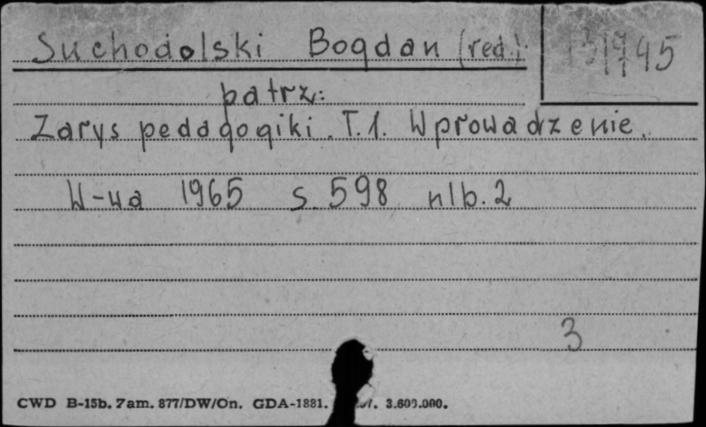 Suchodolski Bogdan (red.)
patrz:
Zarys pedagogiki. T.1. Wprowadzenie.
W-wa 1965 s. 598 nlb. 2
3
CWD B-15b. Zam. 877/DW/On. GDA-1881. 3.600.000.